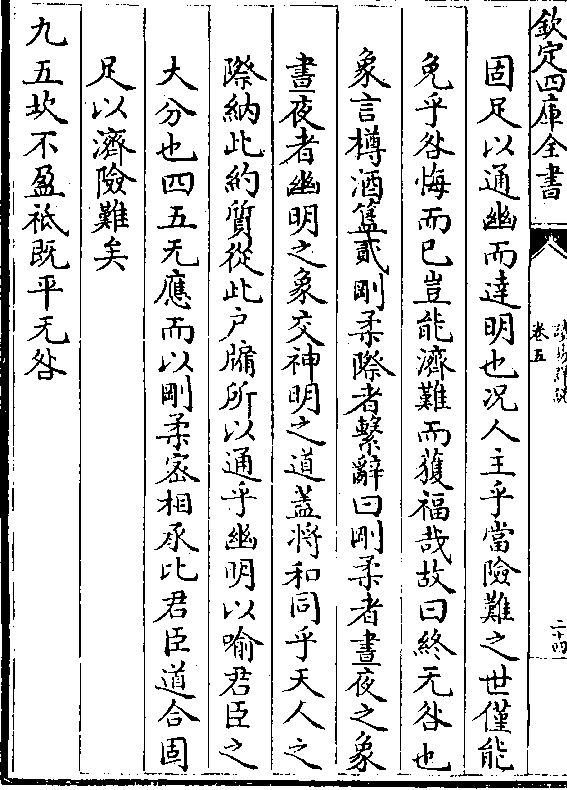 欽定四庫全書
讀易詳說
卷五
二十四
固足以通幽而達明也况人主乎當險難之世僅能
免乎咎悔而已豈能濟難而獲福哉故曰終无咎也
象言樽酒簋貳剛柔際者繫辭曰剛柔者晝夜之象
晝夜者幽明之象交神明之道蓋將和同乎天人之
際納此約質從此戶牖所以通乎幽明以喻君臣之
大分也四五无應而以剛柔密相承比君臣道合固
足以濟險難矣
九五坎不盈祗既平无咎